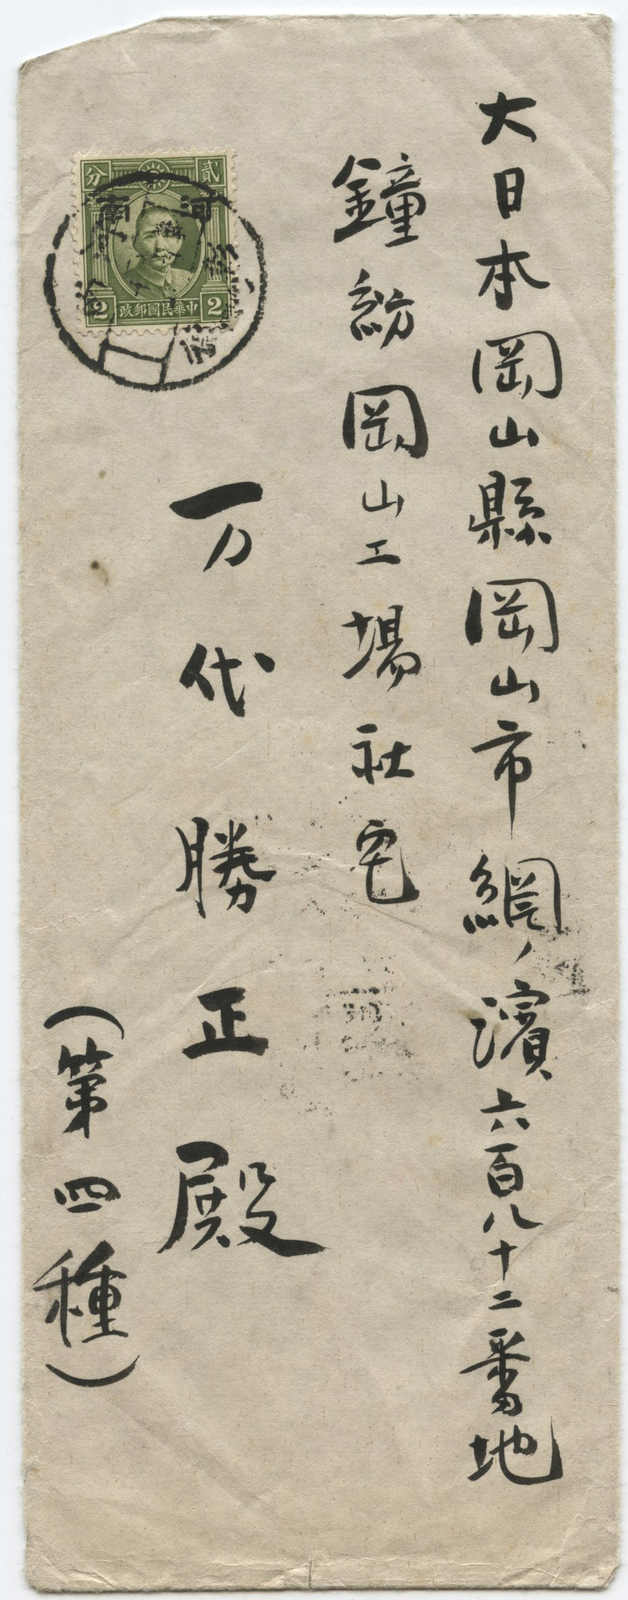 大日本岡山縣岡山市網ノ濱六百八十二番地
鐘紡岡山工場社宅
万代勝正殿
(第四種)
分 貳
河南
2 中華民國郵政 2